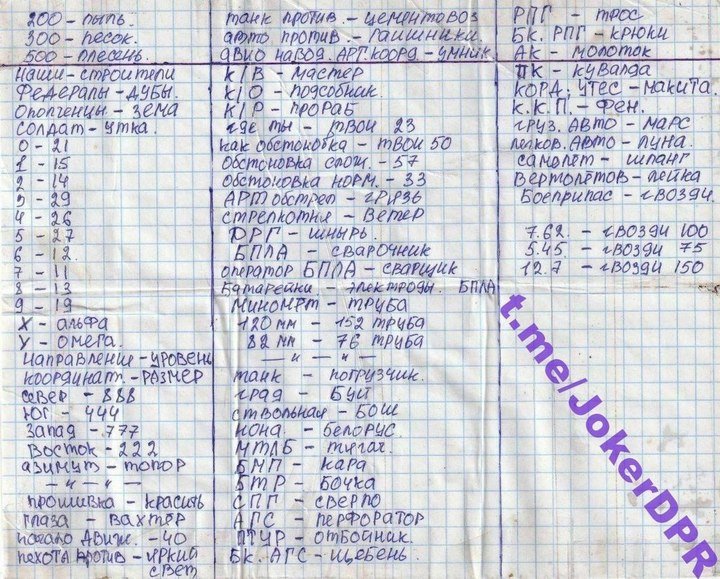 200 - пыль.
300 - песок.
500 - плесень.
Наши - строители
Федералы - дубы.
Ополченцы - зема
Солдат - утка.
0 - 21
1 - 15
2 - 14
3 - 29
4 - 26
5 - 27
6 - 12.
7 - 11
8 - 13
9 - 19
X - альфа
У - омега.
Направление - уровень
координат. - размер
север - 888
Юг. - 444
Запад - 777
Восток - 222
азимут - топор
— " — " —
прошивка - красить
глаза - вахтёр
начало движ. - 40
пехота против - яркий
свет
танк против. - цементовоз
авто против - гаишники.
авио навод. арт. коорд. - умник.
К/В - мастер
К/О - подсобник.
К/Р - прораб
где ты - твои 23
как обстоновка - твои 50
Обстоновка слож. - 57
обстоновка норм. - 33
АРТ обстрел - грязь
стрелкотня - ветер
ДРГ - шнырь.
БПЛА - сварочник
оператор БПЛА - сварщик
батарейки - электроды. БПЛА
миномёт - труба
120 мм - 152 труба
82 мм - 76 труба
— " — " —
танк - погрузчик.
град - Буй
ствольная - БОШ
нона - белорус.
МТЛБ - тягач.
БМП - кара
БТР - бочка
СПГ - сверло
АГС - перфоратор
ПТУР - отбойник.
БК. АГС - щебень.
РПГ - трос
БК. РПГ - крюки
АК - молоток
ПК - кувалда
КОРД; УТЕС - макита.
К.К.П. - Фен.
груз. авто - марс
легков. авто - луна.
самолет - шланг
вертолётов - лейка
Боеприпас - гвозди.
7.62. - гвозди 100
5.45 - гвозди 75
12.7 - гвозди 150
t.me/JokerDPR